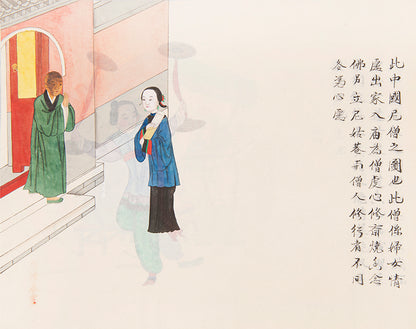 此中國尼僧之圖也此僧係婦女情
處出家入庙為僧虔心修齋燒香念
佛另立尼姑巷和僧人修行有不同
各馮心愿